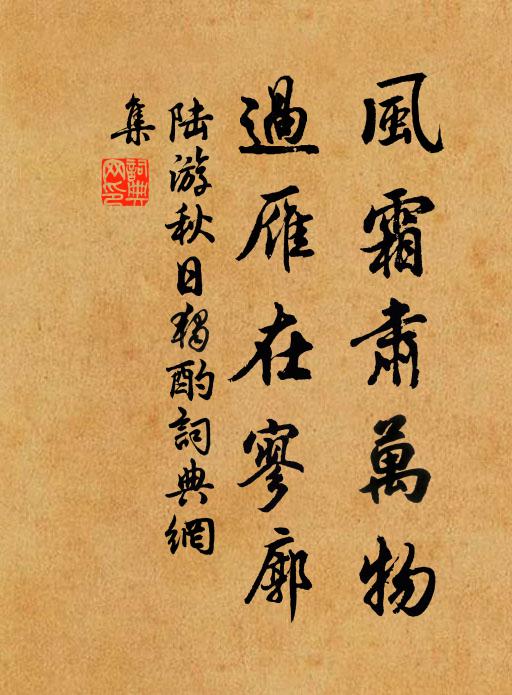 風霜肅萬物
過雁在寥廓
陸游秋日獨酌詞典網
集
詞典网印